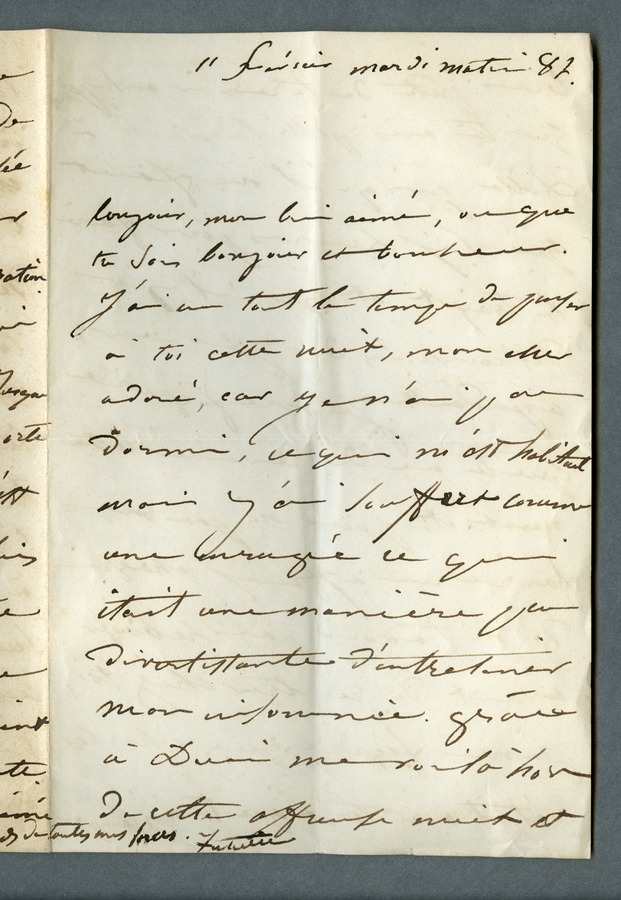 11 février mardi matin 8h.
bonjour, mon bien aimé, où que
tu sois bonjour et bonheur.
J'ai eu tout le temps de penser
à toi cette nuit, mon cher
adoré, car je n'ai pas
dormi, ce qui m'est habituel
mais j'ai souffert comme
une enragée ce qui
était une manière peu
divertissante d'entretenir
mon insomnie. grâce
à Dieu me voilà hors
de cette affreuse nuit et
de toutes mes forces. Juliette